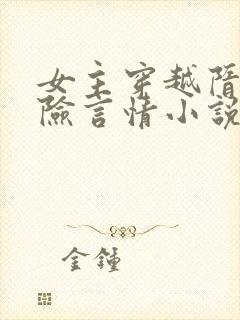 女主穿越隋
險言情小說
金鍾